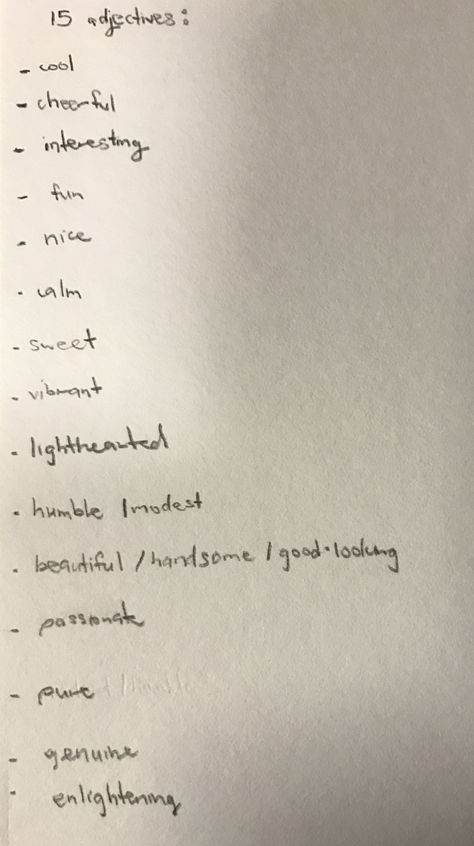 15 adjectives:
- cool
- cheerful
- interesting
- fun
- nice
- calm
- sweet
- vibrant
- lighthearted
- humble / modest
- beautiful / handsome / good-looking
- passionate
- pure
- genuine
- enlightening